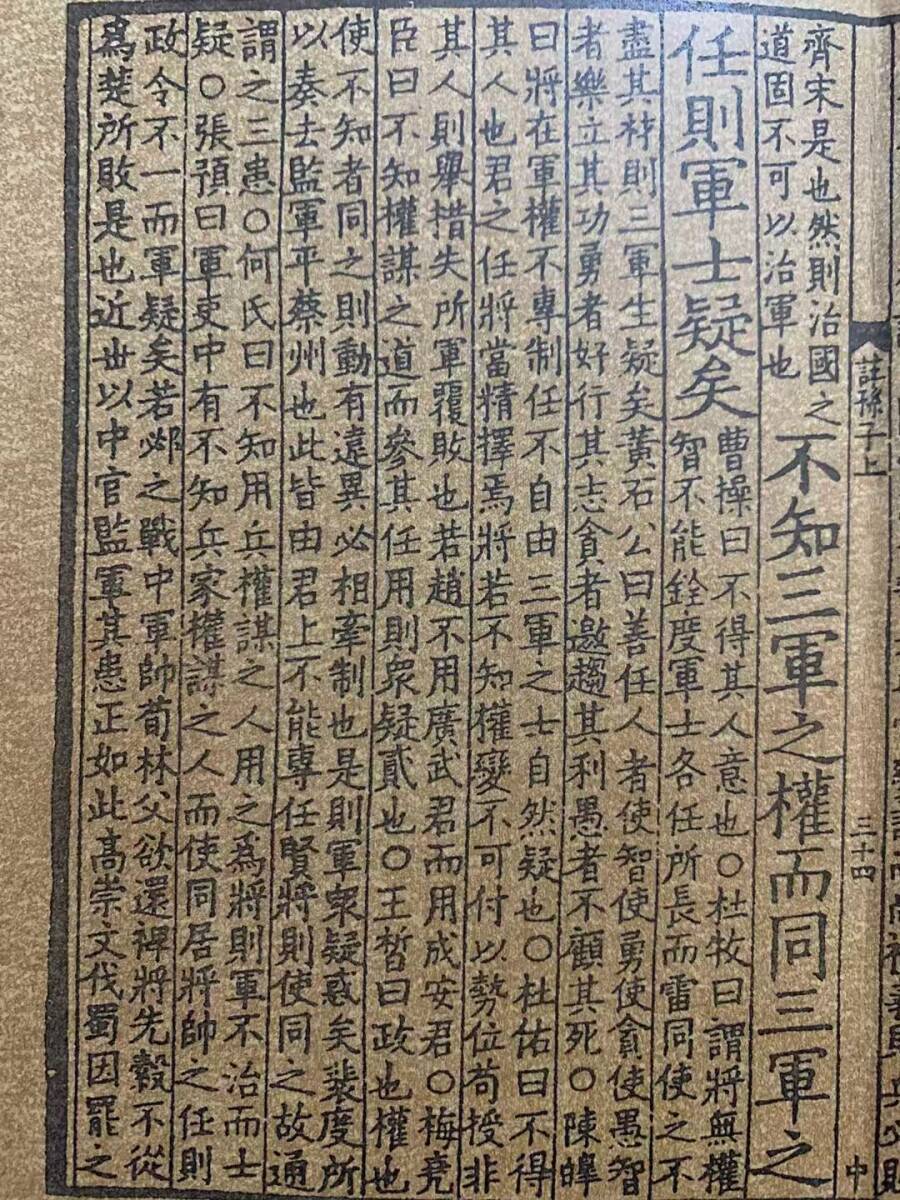 註孫子上
三十四
中
齊宋是也然則治國之
道固不可以治軍也
不知三軍之權而同三軍之
任則軍士疑矣
曹操曰不得其人意也○杜牧曰謂將無權
智不能銓度軍士各任所長而雷同使之不
盡其材則三軍生疑矣黃石公曰善任人者使智使勇使貪使愚智
者樂立其功勇者好行其志貪者邀趨其利愚者不顧其死○陳皡
曰將在軍權不專制任不自由三軍之士自然疑也○杜佑曰不得
其人也君之任將當精擇焉將若不知權變不可付以勢位苟授非
其人則舉措失所軍覆敗也若趙不用廣武君而用成安君○梅堯
臣曰不知權謀之道而參其任用則衆疑貳也○王晳曰政也權也
使不知者同之則動有違異必相牽制也是則軍衆疑惑矣裴度所
以奏去監軍平蔡州也此皆由君上不能專任賢將則使同之故通
謂之三患○何氏曰不知用兵權謀之人用之爲將則軍不治而士
疑○張預曰軍吏中有不知兵家權謀之人而使同居將帥之任則
政令不一而軍疑矣若邲之戰中軍帥荀林父欲還裨將先縠不從
爲楚所敗是也近世以中官監軍其患正如此高崇文伐蜀因罷之